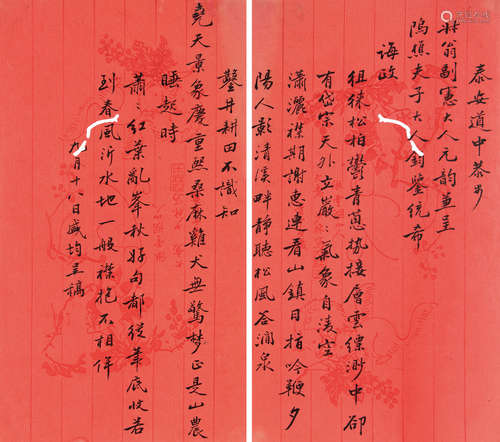 泰安道中恭步
林翁副宪大人元韵并呈
隝樵夫子大人钧鉴统希
诲政
徂徕松柏鬱青葱势接层云缥渺中卻
有岱宗天外立巖〻氣象自凌空
瀟灑襟期謝惠連看山鎮日指吟鞭夕
陽人影清溪畔静聽松風答澗泉
鑿井耕田不識知
堯天景象慶重熙桑麻雞犬無驚夢正是山農
睡起時
蕭〻紅葉亂峯秋好句都從筆底收若
到春風沂水地一般襟抱不相侔
九月十八日盛均呈稿